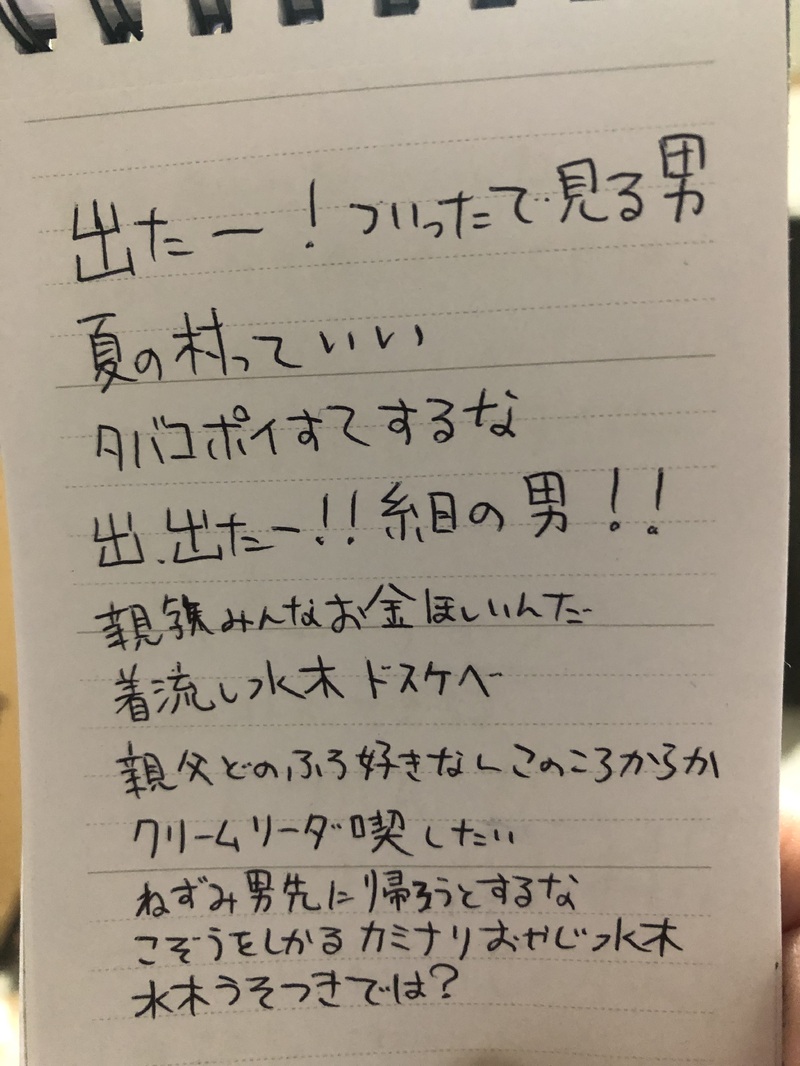 出たー！ついったで見る男
夏の村っていい
タバコポイすてするな
出、出たー!!組の男!!
親族みんなお金ほしいんだ
着流し水木ドスケベ
親父どのふろ好きなしこのころからか
クリームソーダ喫したい
ねずみ男先に帰ろうとするな
こぞうをしかるカミナリおやじ水木
水木うそつきでは?